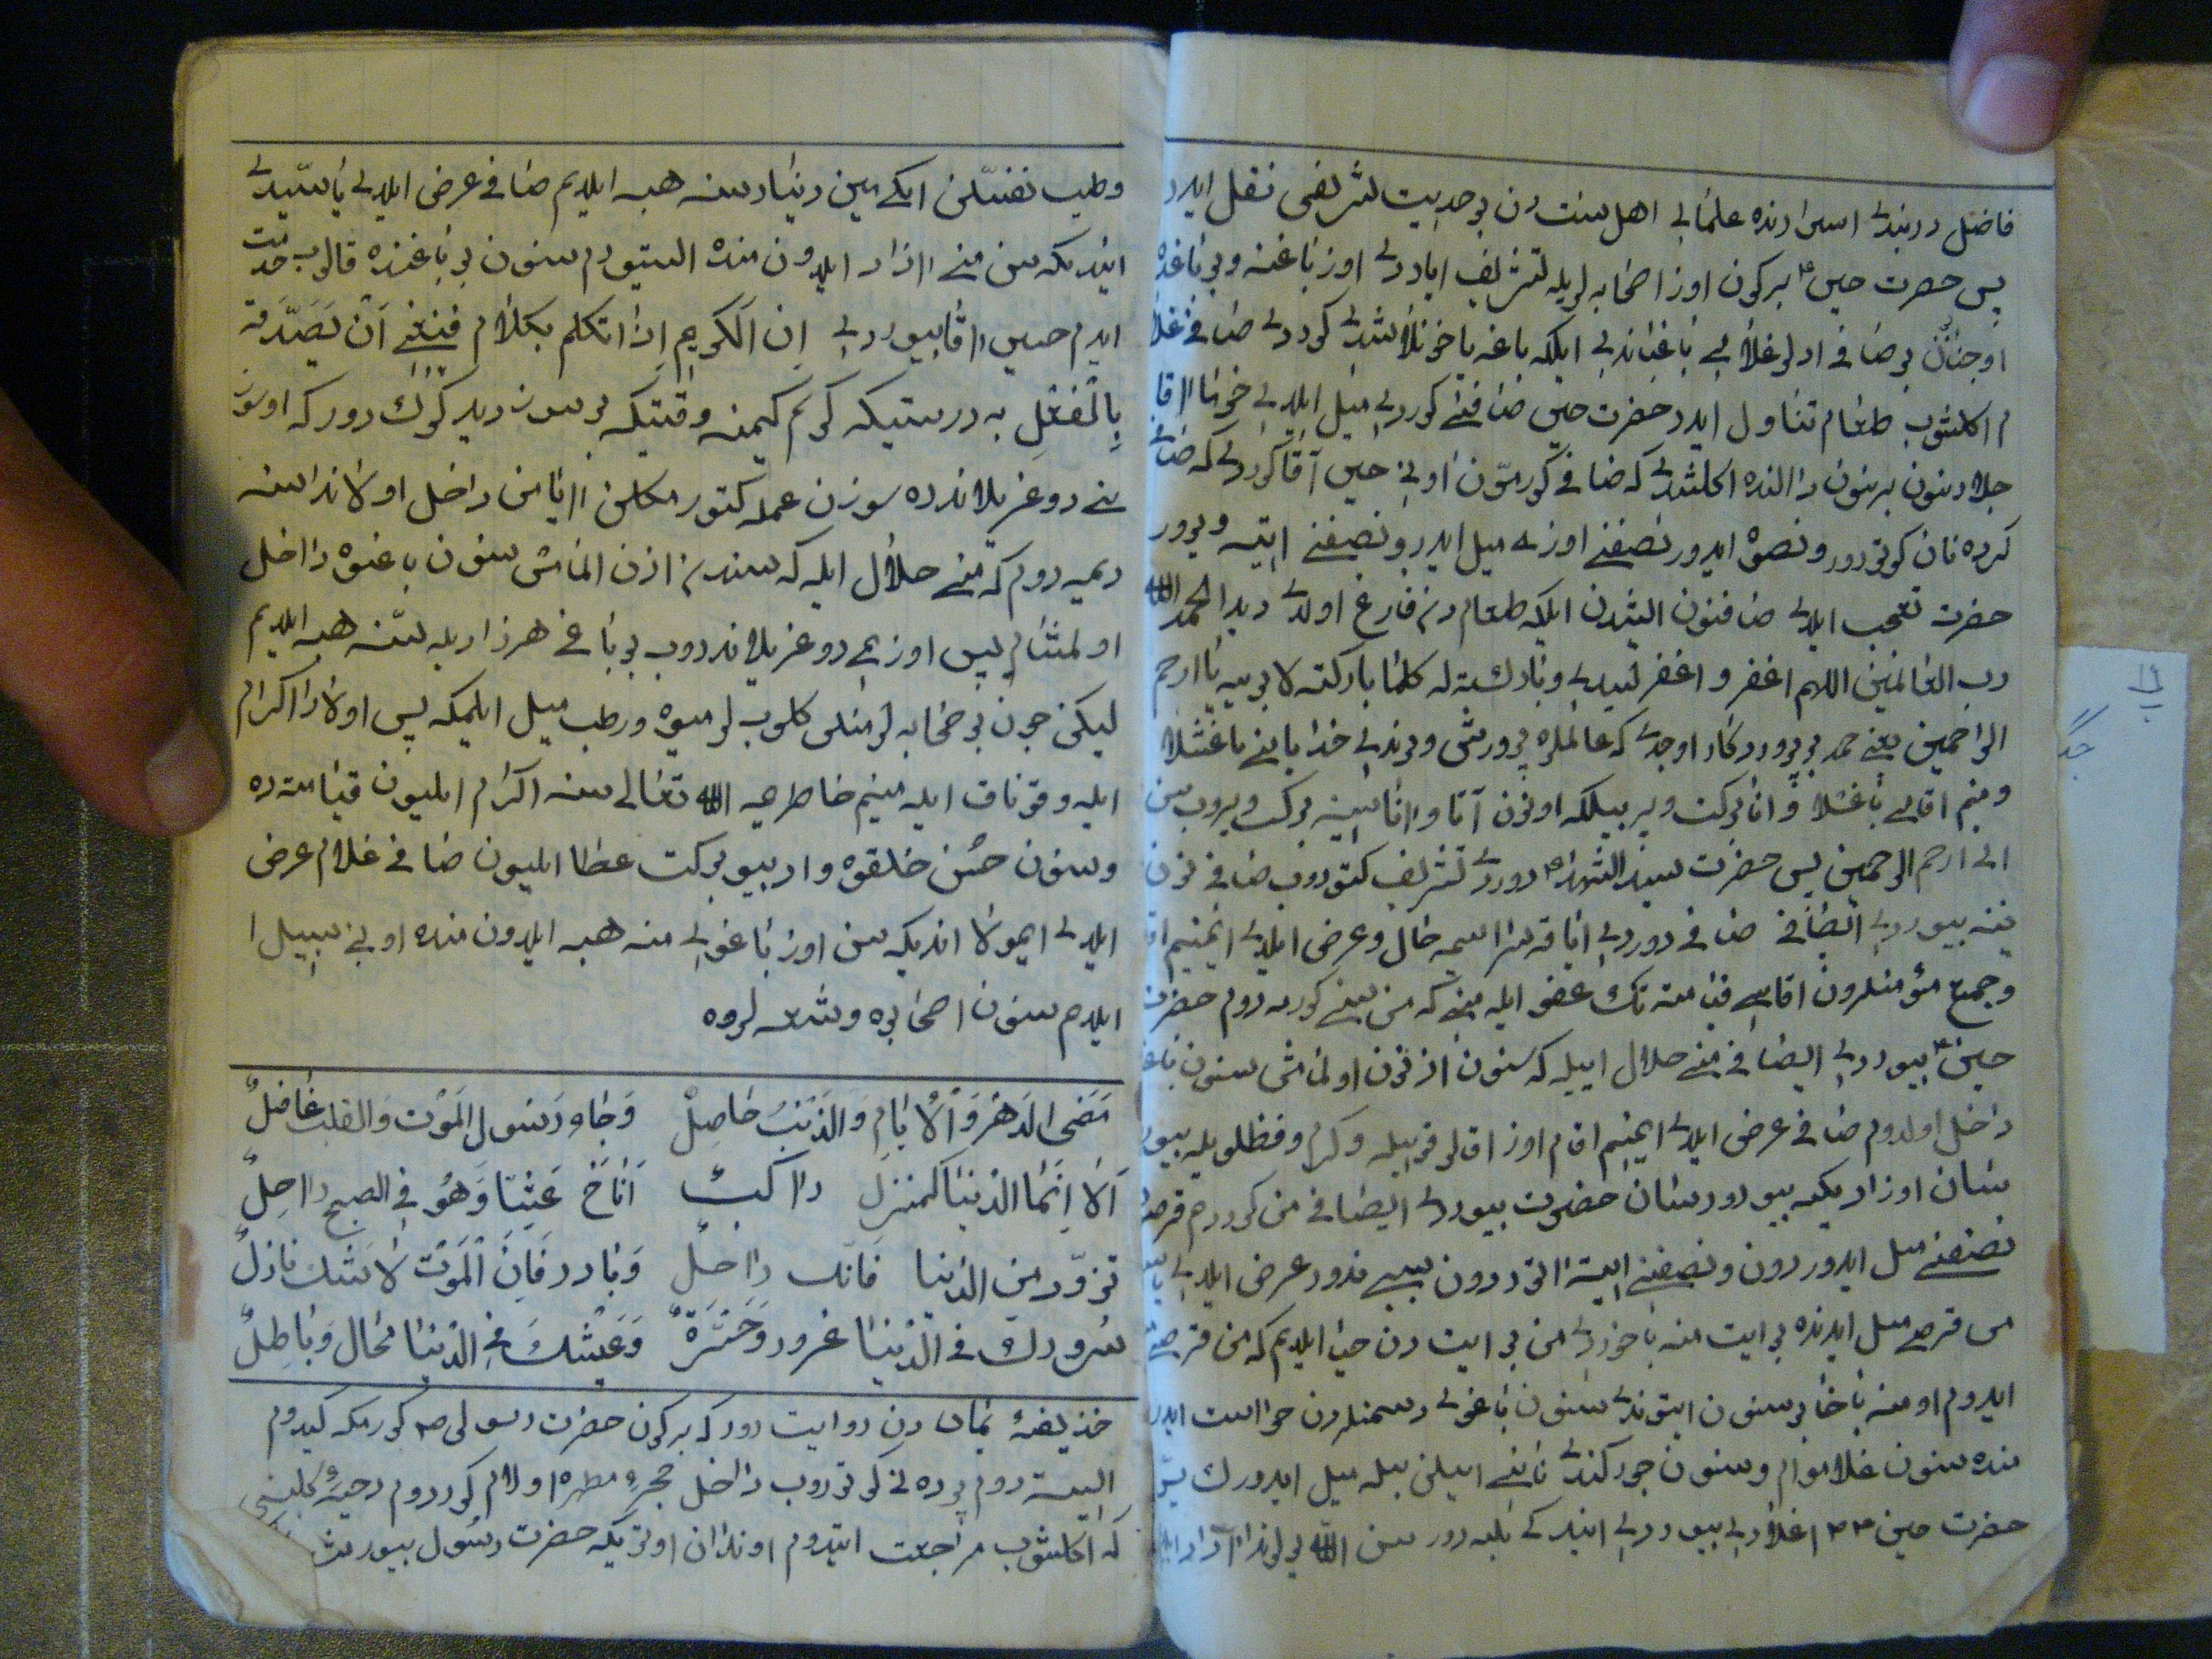 فاضل دربندی اسرارنده علمای اهل سنت دن بو حدیث شریفی نقل ایدر
پس حضرت حسین ۴ بر کون اوز اصحابه لریله تشریف اپاردی اوز باغنه و بو باغده
اوچنان بر صافی ادلو غلامی باغباندی ایلکه باغه یاخونلاشدی کوردی صافی غلا
م اکلشوب طعام تناول ایدر حضرت حسین صافینی کوردی میل ایلدی خرما اقا
جلارنون برینون دالنده اکلشدی که صافی کورمسون اونی حسین آقا کوردی که صافی
کرده نان کوتوردور و نصف ایدور نصفنی اوزی میل ایدر و نصفنی ایته ویرور
حضرت تعجب ایلدی صافینون ایشندن ایلکه طعام دن فارغ اولدی دیدی الحمد الله
رب العالمین اللهم اغفر و اغفر لسیدی و بارک له کلما بارکته لابویه یا ارحم
الراحمین یعنی حمد بو پروردکار اوچدی که عالملره پرورش ویرندی خدایا منی باغشلا
و منیم اقامی باغشلا و انا برکت ویر بیلکه اونون آتا و اناسینه برکت ویروب سن
ای ارحم الرحمین پس حضرت سید الشهدا ۴ دوردی تشریف کتوردوب صافی نون
یننه بیوردی ایصافی صافی دوردی ایاقه سراسیمه حال و عرض ایلدی ایمنیم اقا
و جمیع مؤمنلرون اقاسی قیامته تک عفو ایله منی که من سنی کورمدوم حضرت
حسین ۴ بیوردی ایصافی منی حلال ایله که سنون اذنون اولمامش سنون باغ
داخل اولدوم صافی عرض ایلدی ایمنیم اقام اوز اقالوقیله و کرم و فضلویله بیور
سان اوزاریکیه بیوررسان حضرت بیوردی ایصافی من کوردم قرصون
نصفنی میل ایدوردون و نصفنی ایته اتوردون سببی ندور عرض ایلدی یاسیدی
من قرصی میل ایدنده بو ایت منه باخوردی من بو ایت دن حیا ایلدیم که من قرصی
ایدوم او منه باخا بو سنون ایتوندی سنون باغوی دشمنلردن حراست ایدر
منده سنون غلاموام و سنون چورکندی نانی ایسن بیله میل ایدورک
حضرت حسین ۴ اغلادی بیوردی ایندی که بیله دور سن الله یولندا آزاد ایلدیم
و طیب نفسلن ایکی مین دینار سنه هبه ایلدیم صافی عرض ایلدی یا سیدی
ایندیکه سن منی آزاد ایلدون منده ایستیورم سنون بو باغنده قالوب خدمت
ایدم حسین آقا بیوردی ان الکریم اذا تکلم بکلام فینبغی ان یصدقه
بالفعل به درستیکه کریم کیمنه وقتیکه بو سوز دیر کرک دور که او سوز
نی دوغریلاندرده سوزن عمله کتورمکلن ایا من داخل اولاندا سنه
دیمیردوم که منی حلال ایله که سندن اذن المامش سنون باغوه داخل
اولمشام پس اوزیمی دوغریلاندروب بو باغی هر زادیله سنه هبه ایلدیم
لیکن چون بو صحابه لر منلن کلوبلر میوه و رطب میل ایلمکه پس اولارا اکرام
ایله و قوناق ایله منیم خاطریمه الله تعالی سنه اکرام ایلیون قیامتده
و سنون حسن خلقوه و ادبیوه برکت عطا ایلیون صافی غلام عرض
ایلدی ایمولا ایندیکه سن اوز باغوی منه هبه ایلدون منده اونی سبیل
ایلدم سنون اصحابوه و شیعه لروه
مَضَی الدَهرُ وَ الاَیامُ وَالذَنبُ حاصِلٌ وَجاءَ رَسُول المَوت وَالقلب غافلٌ
اَلا اِنَّمَا الدُنیا کمَنزِلِ راکبٍ اَناخَ عَشِیّا وَهُوَ فی الصبح راحِلٌ
تزوّد من الدُنیا فَانّک راحلٌ وَبادر فَاِنَ اَلمَوت لا شک نازلٌ
سُرورک فی الدُنیا غرور وَحَسرَةٌ وَعَیشکَ فی الدُنیا مُحال وَباطِلٌ
حذیفهٔ یمان دن روایت دور که بر کون حضرت رسولی ص کورمکه کیدردوم
ایستدوم پرده نی کوتوروب داخل حجرهٔ مطهره اولام کوردوم دحیهٔ کلبی
که اکلشوب مراجعت ایتدوم اوندان اوتریکه حضرت رسول بیورمش